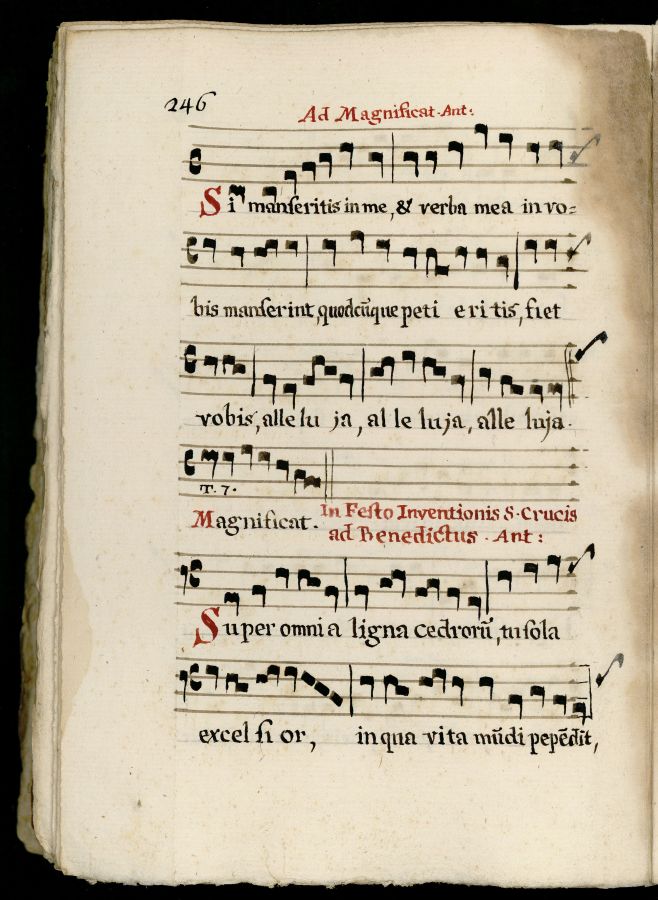 246
Ad Magnificat. Ant:
Si manseritis in me, & verba mea in vo=
bis manserint, quodcũque peti eritis, fiet
vobis, alle lu ja, al le luja, alle luja.
T. 7.
Magnificat. In Festo Inventionis S. Crucis
ad Benedictus. Ant:
Super omnia ligna cedrorũ, tu sola
excel si or, in qua vita mũdi pepẽdit,